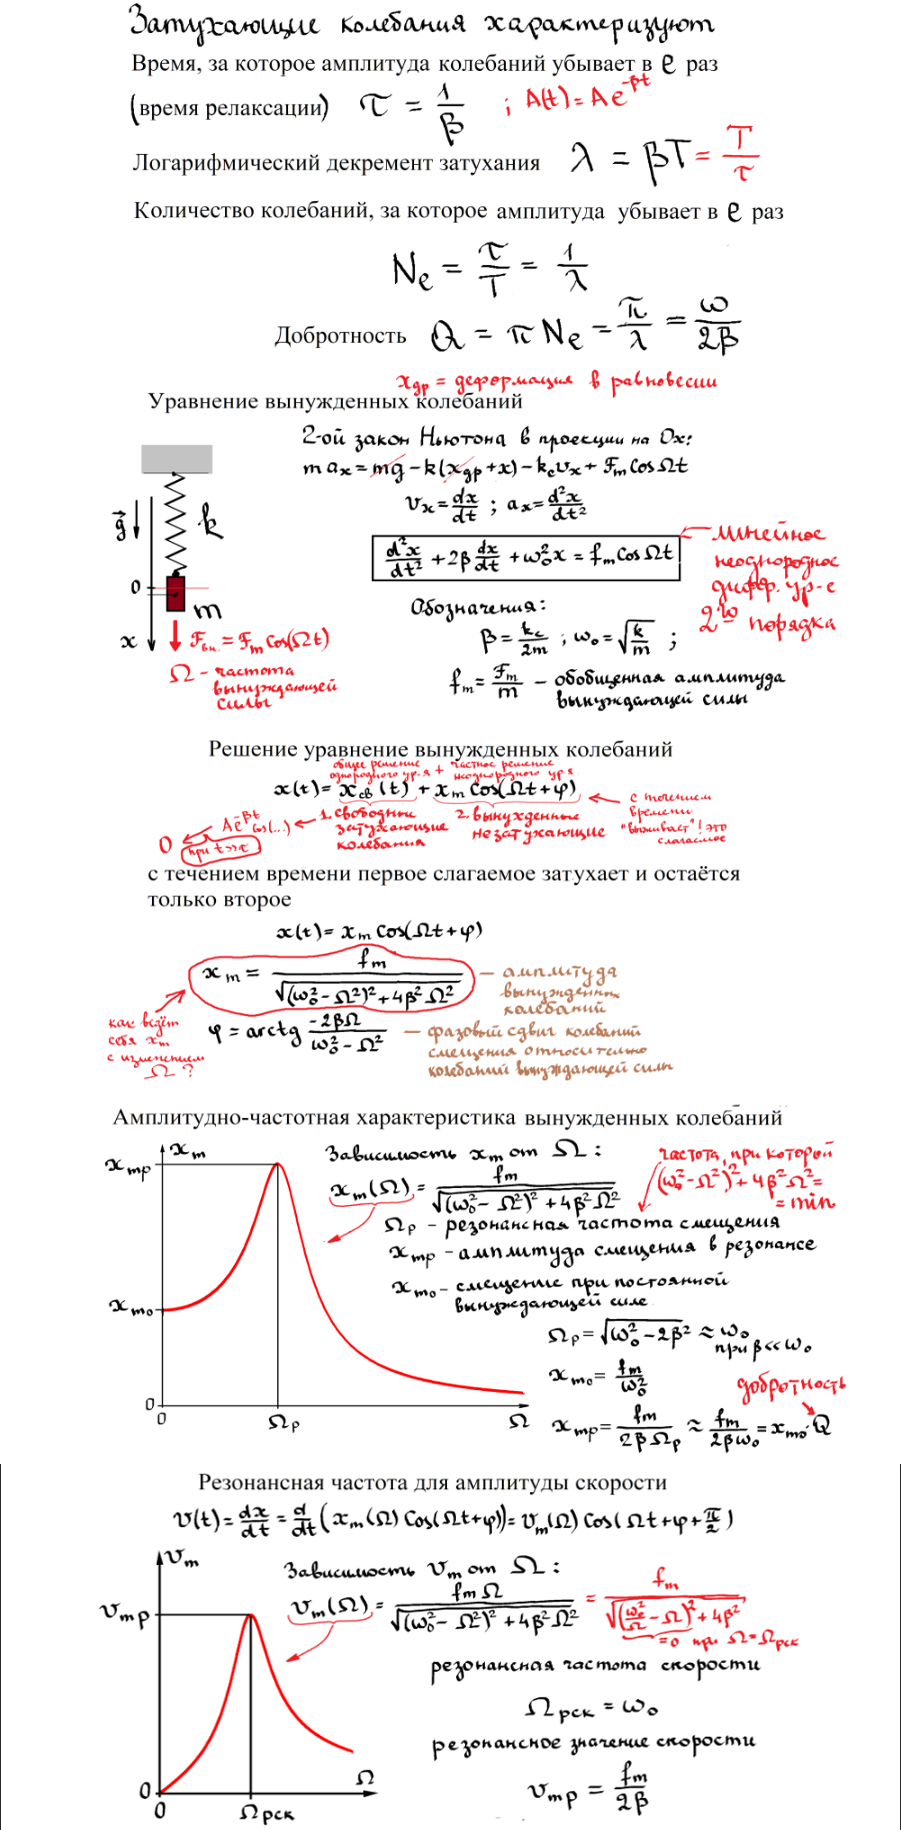 Затухающие колебания характеризуют
Время, за которое амплитуда колебаний убывает в e раз
(время релаксации) τ = 1/β ; A(t) = Ae^(-βt)
Логарифмический декремент затухания λ = βT = T/τ
Количество колебаний, за которое амплитуда убывает в e раз
Nₑ = τ/T = 1/λ
Добротность Q = πNₑ = π/λ = ω/2β
xдр = деформация в равновесии
Уравнение вынужденных колебаний
2-ой закон Ньютона в проекции на Ox:
m aₓ = mg - k(xдр + x) - k_c vₓ + Fₘ Cos Ωt
vₓ = dx/dt ; aₓ = d²x/dt²
g k
d²x/dt² + 2β dx/dt + ω₀² x = fₘ Cos Ωt
линейное
неоднородное
дифф. ур-е
2го порядка
0
m
x
Fвн. = Fₘ Cos(Ωt)
Ω - частота
вынуждающей
силы
Обозначения:
β = k_c/2m ; ω₀ = √(k/m) ;
fₘ = Fₘ/m - обобщенная амплитуда
вынуждающей силы
Решение уравнение вынужденных колебаний
общее решение + частное решение
однородного ур-я неоднородного ур-я
x(t) = xсв(t) + xₘ Cos(Ωt + φ)
0 Ae^(-βt) Cos(...)
при t>>τ
1. свободные
затухающие
колебания
2. вынужденные
незатухающие
с течением
времени
"выживает"! это
слагаемое
с течением времени первое слагаемое затухает и остаётся
только второе
x(t) = xₘ Cos(Ωt + φ)
xₘ = fₘ/√((ω₀² - Ω²)² + 4β²Ω²) - амплитуда
вынужденных
колебаний
как ведёт
себя xₘ
с изменением
Ω ?
φ = arctg (-2βΩ)/(ω₀² - Ω²) - фазовый сдвиг колебаний
смещения относительно
колебаний вынуждающей силы
Амплитудно-частотная характеристика вынужденных колебаний
xₘ
xₘр
xₘ₀
0
0 Ωр Ω
Зависимость xₘ от Ω :
xₘ(Ω) = fₘ/√((ω₀² - Ω²)² + 4β²Ω²)
частота, при которой
(ω₀² - Ω²)² + 4β²Ω² =
= min
Ωр - резонансная частота смещения
xₘр - амплитуда смещения в резонансе
xₘ₀ - смещение при постоянной
вынуждающей силе
Ωр = √(ω₀² - 2β²) ≈ ω₀
при β<<ω₀
xₘ₀ = fₘ/ω₀²
добротность
xₘр = fₘ/(2βΩр) ≈ fₘ/(2βω₀) = xₘ₀·Q
Резонансная частота для амплитуды скорости
v(t) = dx/dt = d/dt (xₘ(Ω) Cos(Ωt + φ)) = vₘ(Ω) Cos(Ωt + φ + π/2)
vₘ
vₘр
0
0 Ωрск Ω
Зависимость vₘ от Ω :
vₘ(Ω) = fₘΩ/√((ω₀² - Ω²)² + 4β²Ω²) = fₘ/√((ω₀²/Ω - Ω)² + 4β²)
=0 при Ω = Ωрск
резонансная частота скорости
Ωрск = ω₀
резонансное значение скорости
vₘр = fₘ/2β